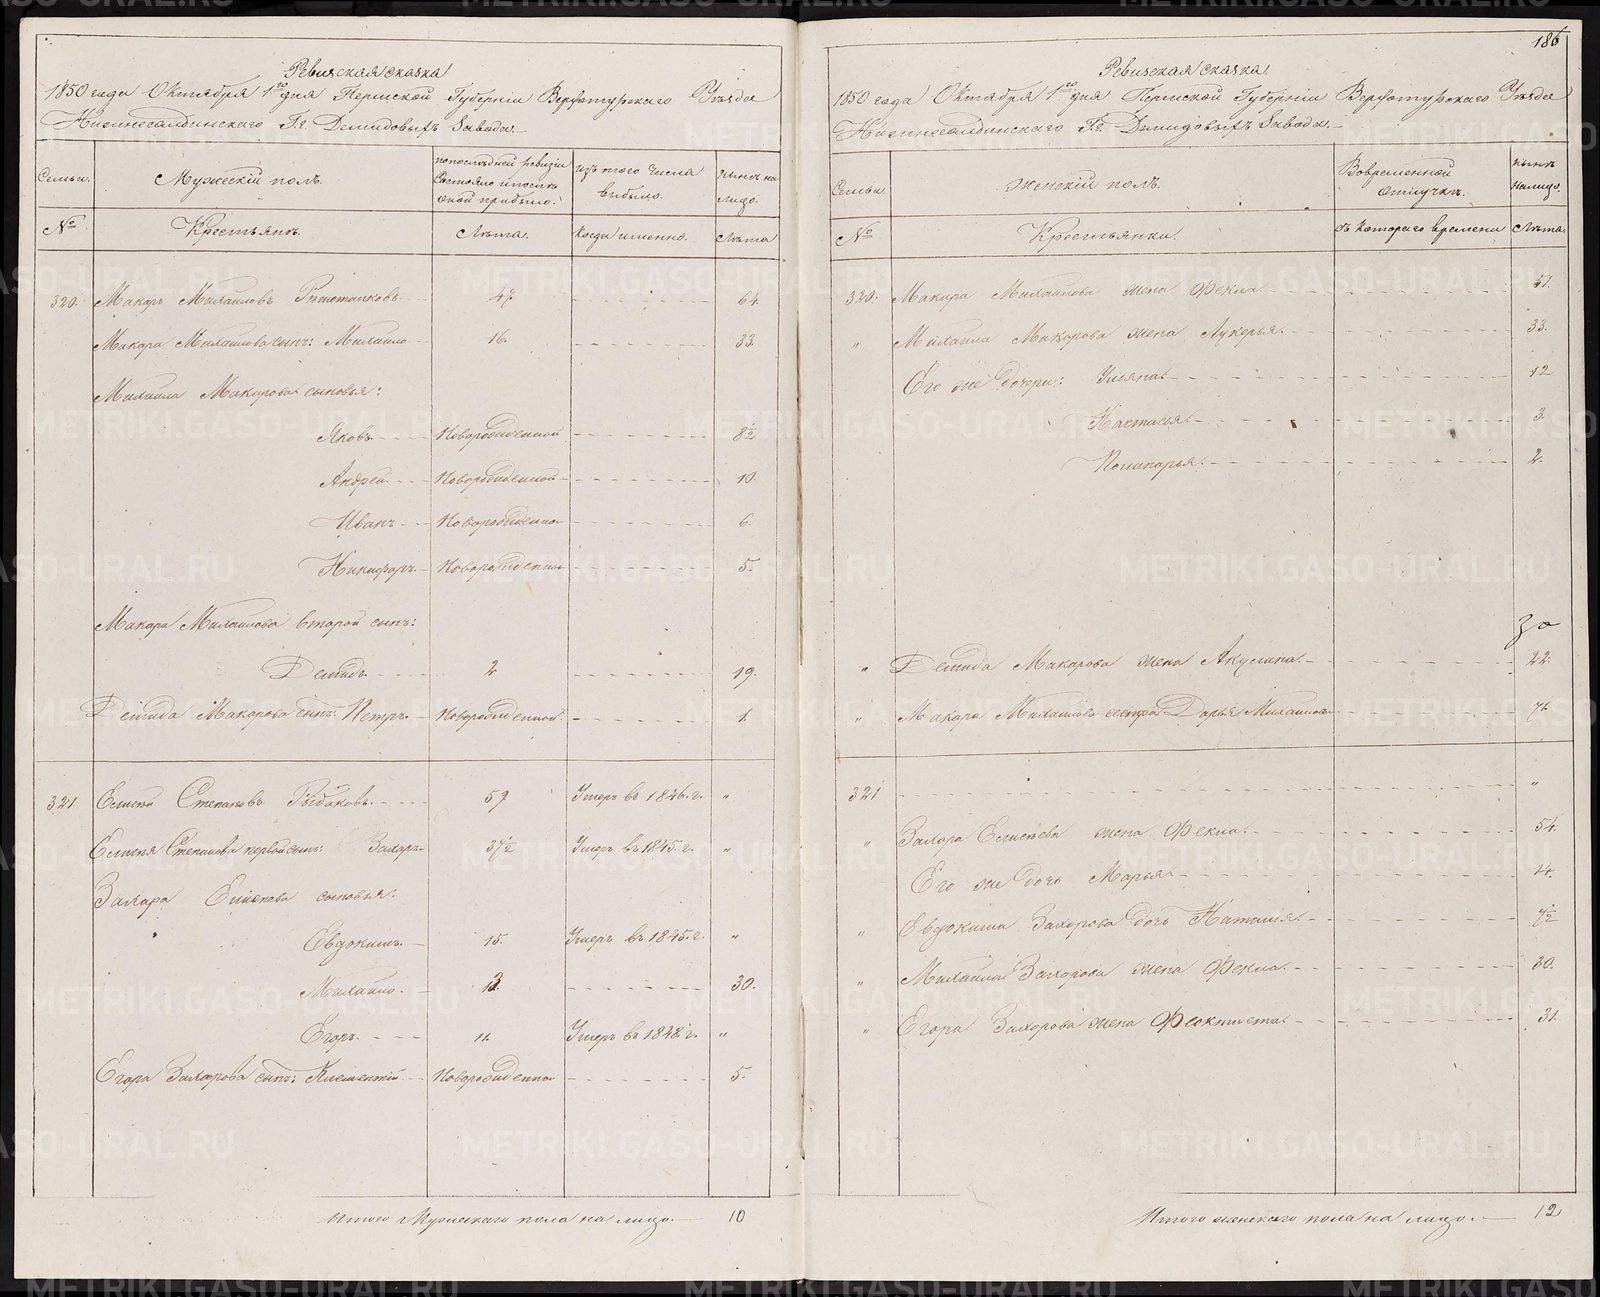 Ревизская сказка
1850 года Октября 1го дня Пермской Губернии Верхотурского Уезда
Нижнесалдинского Гг. Демидовыхъ Завода.
Семьи. Мужескій полъ. По последней ревизіи состояло и после оной прибыло. Изъ того числа выбыло. Ныне на лицо.
№ Крестьяне. Лета. Когда именно. Лета
320. Макаръ Михайловъ 47. 64.
Макара Михайлова сынъ: Михайло 16. 33.
Михайла Макарова сыновья:
Яковъ Новорожденной 8½
Андрей Новорожденной 10.
Иванъ Новорожденно 6.
Никифоръ Новорожденно 5.
Макара Михайлова второй сынъ:
Демидъ 2 19.
Демида Макарова сынъ: Петръ Новорожденной 1.
321 Елисей Степановъ Рыбаковъ. 59 Умеръ въ 1846. г. "
Елисея Степанова первой сынъ: Захаръ 37½ Умеръ въ 1845. г. "
Захара Елисеева сыновья:
Евдокимъ. 15. Умеръ въ 1845. г. "
Михайло. 13. 30.
Егоръ. 11. Умеръ въ 1848. г. "
Егора Захарова сынъ: Клементій Новорожденно 5.
Итого Мужескаго пола на лицо. 10
186
Ревизская сказка.
1850 года Октября 1го дня Пермской Губерніи Верхотурского Уезда
Нижнесалдинского Гг. Демидовыхъ Завода.
Семьи. Женскій полъ. Во временной отлучке. Ныне на лицо.
№ Крестьянки. Съ котораго времени Лета.
320. Макара Михайлова жена Фекла 51.
" Михайла Макарова жена Лукерья. 33.
Его же дочери: Ульяна 12
Настасья 3.
2.
30
" Демида Макарова жена Акулина. 22.
" Макара Михайлова сестра Дарья Михайлова 71.
321 "
" Захара Елисеева жена Фекла. 54.
Его же дочь Марья 14.
" Евдокима Захарова дочь Наталья 7½
" Михайла Захарова жена Фекла. 30.
" Егора Захарова жена Феоктиста. 31.
Итого женскаго пола на лицо. 12
METRIKI.GASO-URAL.RU